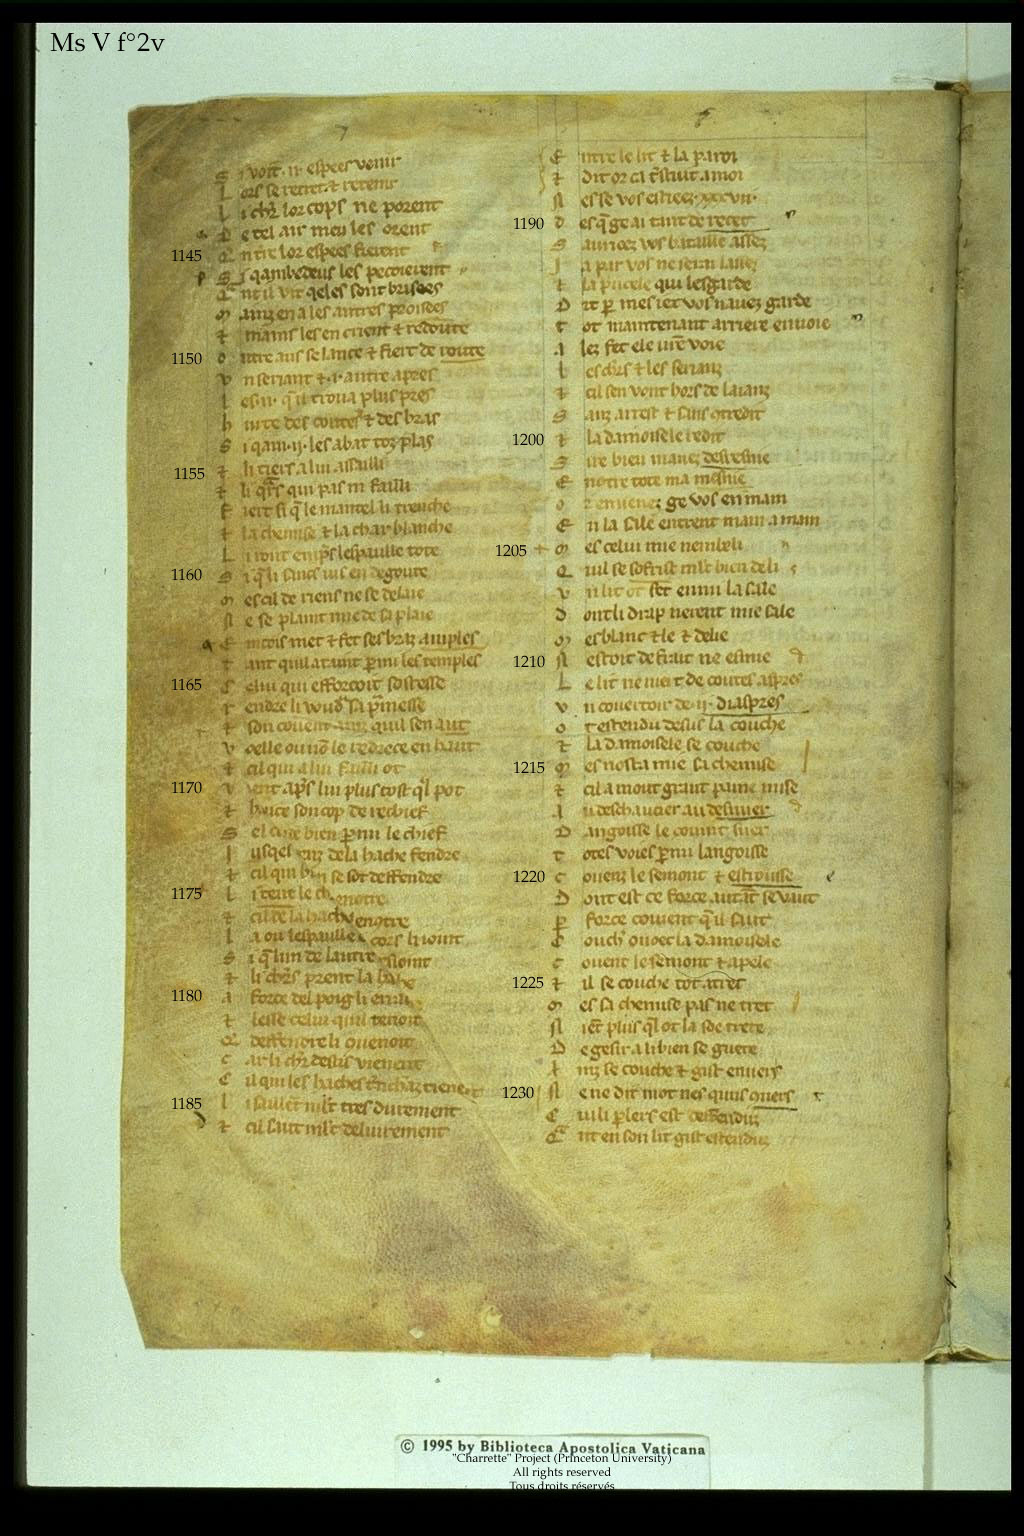 Ms V f°2v
L ors se retret & retenir
L i chr lor cops ne porent
D e tel air meu les orent
1145
Q ntre lor espees fierent
S i qambedeus les peceierent
Q nt il vit qeles sont brisees
m ainz en a les autres proisees
& mains les en crient & redoute
1150
o utre aus se lance & fiert de route
v n seriant & .i. autre apres
L es .ii. q il troua plus pres
h urte des coutes & des bras
S i qam .ii. les abat toz plas
1155
& li tiers a lui assailli
& li qrs qui pas ni failli
F iert si q le mantel li trenche
& la chemise & la char blanche
L i ront empres lespaulle tote
1160
S i q li sancs ius en degoute
m es cil de riens ne se delaie
N e se plaint mie de sa plaie
E incois met & fet ses braz amples
T ant quil ataint p mi les temples
1165
C elui qui efforcoit sostesse
r endre li voudra sa pmesse
& son couent ainz quil sen aut
v oelle ou no le redrece en haut
& cil qui a lui failli ot
1170
v ient aps lui plus tost ql pot
& hauce son cop de rechief
S el cuide bien p mi le chief
I usqel enz de la hache fendre
& cil qui bien se sot deffendre
1175
L i tent le
& cil de la hache
L a ou lespaulle cors li ioint
S i q lun de lautre
& li chrs prent la hache
1180
a force del poig li errache
& lesse celui quil tenoit
Q deffendre li couenoit
C ar li chr desus vienent
C il qui les haches trenchaz tienent
1185
L i saillet mlt tres durement
& cil saut mlt deliurement
E ntre le lit & la paroi
& dit or ca trestuit a moi
N es se vos estiez .xxxvii.
1190
D es q ge ai tant de recet
S auriez vos bataille assez
J a par vos ne serai lassez
& la pucele qui lesgarde
D it p mes iex vos nauez garde
T ot maintenant arriere enuoie
A lez fet ele uostre voie
L es chrs & les serianz
& cil sen vont hors de laianz
S anz arrest & sans contredit
1200
& la damoisele redit
S ire bien mauez desresnie
E ncontre tote ma mesnie
O r en uenez ge vos en main
E n la sale entrent main a main
1205
m es celui mie nembeli
Q uil se sofrist mlt bien de li
v n lit ot fet enmi la sale
D ont li drap nerent mie sale
m es blanc & le & delie
1210
N estoit de fuirre ne esmie
L e lit ne mert de coutes aspres
v n couertoir de .ii. diaspres
O t estendu desus la couche
& la damoisele se couche
1215
m es nosta mie sa chemise
& cil a mout grant paine mise
A u deschaucier au desnuer
D angoisse le couint suer
T otes voies p mi langoisse
1220
C ouenz le semont & estrousse
D ont est ce force autant se vaut
P force couient q il saut
C ouchier ouoec la damoisele
C ouent le semont & apele
1225
& il se couche tot atret
m es sa chemise pas ne tret
N iet plus ql ot la soe trete
D e gesir a li bien se guete
A inz se couche & gist enuers
1230
N e ne dit mot nes quns conuers
C ui li plers est deffenduz
Q nt en son lit gist estenduz
© 1995 by Biblioteca Apostolica Vaticana
"Charrette" Project (Princeton University)
All rights reserved
Tous droits réservés